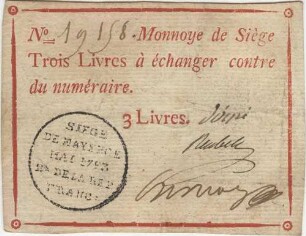 No 19158. Monnoye de Siège
Trois Livres à échanger contre
du numéraire.
3 Livres.
SIEGE
DE MAYENCE
MAI 1793
2e DE LA REP
FRANCE